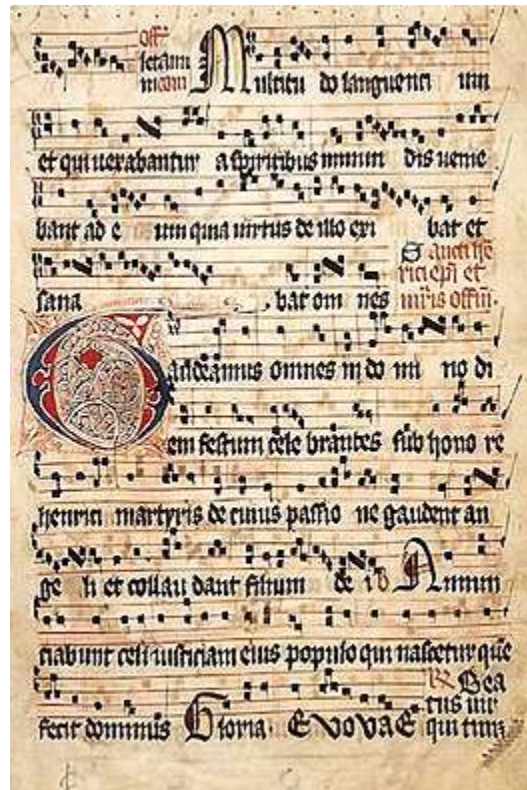 Multitu do languenti um
et qui uexabantur a spiritibus inmun dis uenie
bant ad e um quia uirtus de illo exi bat et
sana bat om nes
Sancti hē
rici ep̄i et
Gaudeamus omnes in do mi no di
em festum cele brantes sub hono re
henrici martyris de cuius passio ne gaudent an
ge li et collau dant filium de i Annun
ciabunt celi iusticiam eius populo qui nascetur quē
Bea
fecit dominus Gloria. E VOVAE
tus uir
qui tim